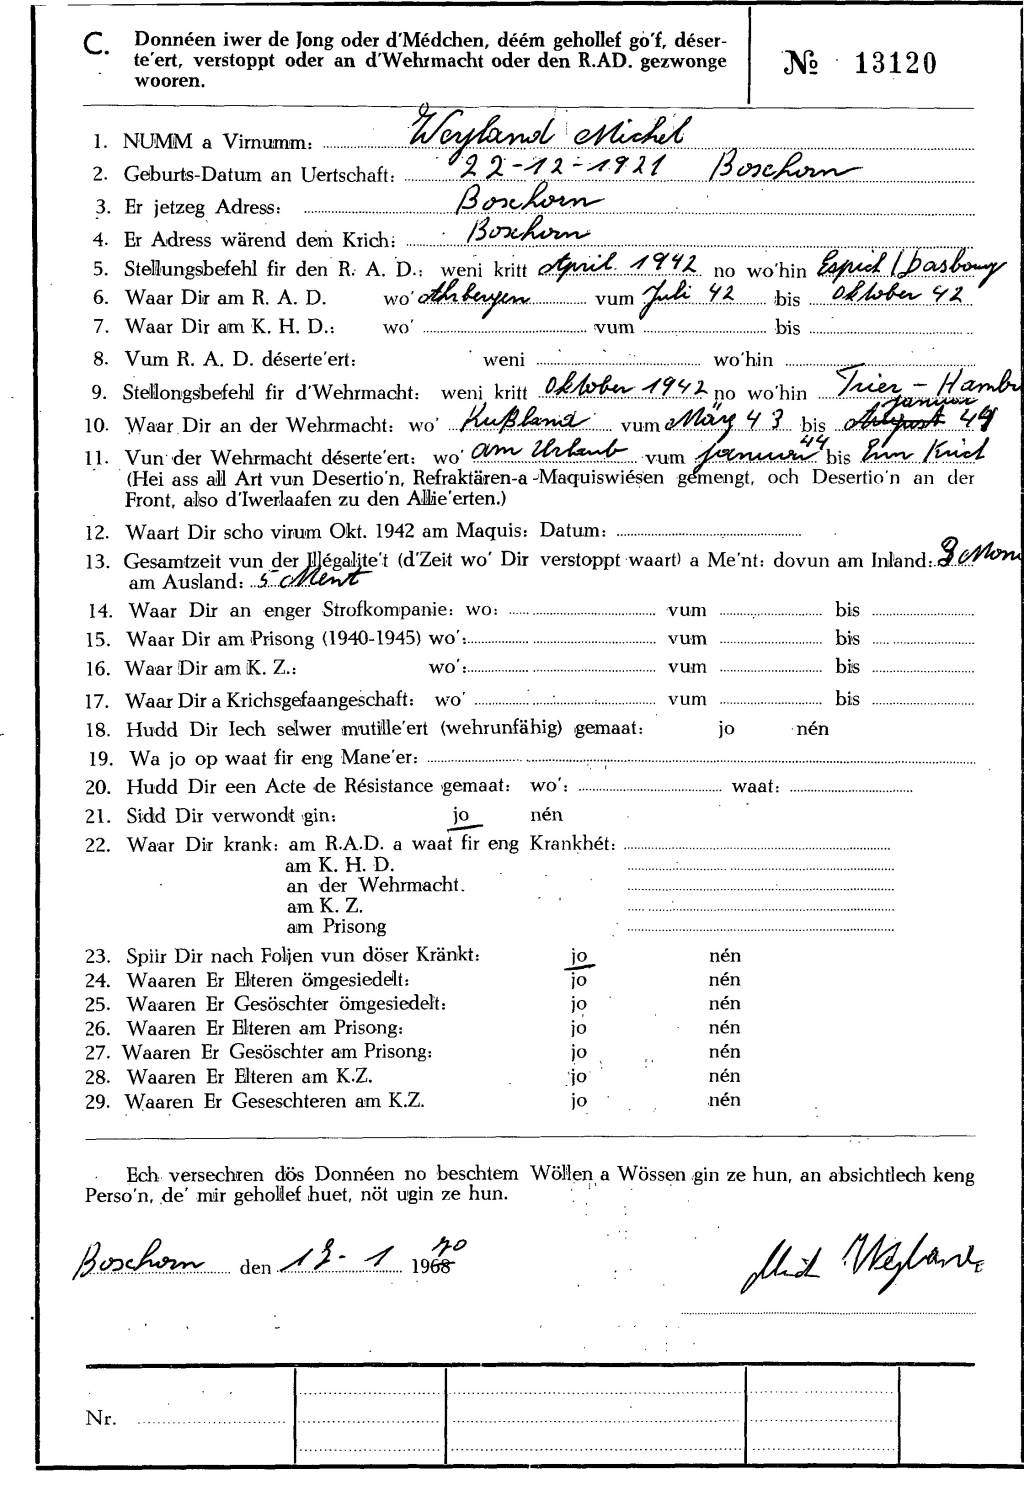 C. Donnéen iwer de Jong oder d'Médchen, déém gehollef go'f, déser-
te'ert, verstoppt oder an d'Wehrmacht oder den R.AD. gezwonge
wooren.
№ 13120
1. NUMM a Virnumm: Weyland Michel
2. Geburts-Datum an Uertschaft: 22-12-1921 Boschorn
3. Er jetzeg Adress: Boschorn
4. Er Adress wärend dem Krich: Boschorn
5. Stellungsbefehl fir den R. A. D.: weni kritt April 1942 no wo'hin
6. Waar Dir am R. A. D. wo' Ahrbergen vum Juli 42 bis Oktober 42
7. Waar Dir am K. H. D.: wo' vum bis
8. Vum R. A. D. déserte'ert: weni wo'hin
9. Stellongsbefehl fir d'Wehrmacht: weni kritt Oktober 1942 no wo'hin Trier - Hambu
10. Waar Dir an der Wehrmacht: wo' Rußland vum März 43 bis August januar 44
11. Vun der Wehrmacht déserte'ert: wo' am Urlaub vum januar 44 bis Enn Krich
(Hei ass all Art vun Desertio'n, Refraktären-a -Maquiswiésen gemengt, och Desertio'n an der
Front, also d'Iwerlaafen zu den Allie'erten.)
12. Waart Dir scho virum Okt. 1942 am Maquis: Datum:
13. Gesamtzeit vun der Illégalite't (d'Zeit wo' Dir verstoppt waart) a Me'nt: dovun am Inland: 3 Mon
am Ausland: 5 Ment
14. Waar Dir an enger Strofkompanie: wo: vum bis
15. Waar Dir am Prisong (1940-1945) wo': vum bis
16. Waar Dir am K. Z.: wo': vum bis
17. Waar Dir a Krichsgefaangeschaft: wo' vum bis
18. Hudd Dir Iech selwer mutille'ert (wehrunfähig) gemaat: jo nén
19. Wa jo op waat fir eng Mane'er:
20. Hudd Dir een Acte de Résistance gemaat: wo': waat:
21. Sidd Dir verwondt gin: jo nén
22. Waar Dir krank: am R.A.D. a waat fir eng Krankhét:
am K. H. D.
an der Wehrmacht.
am K. Z.
am Prisong
23. Spiir Dir nach Foljen vun döser Kränkt: jo nén
24. Waaren Er Elteren ömgesiedelt: jo nén
25. Waaren Er Gesöschter ömgesiedelt: jo nén
26. Waaren Er Elteren am Prisong: jo nén
27. Waaren Er Gesöschter am Prisong: jo nén
28. Waaren Er Elteren am K.Z. jo nén
29. Waaren Er Geseschteren am K.Z. jo nén
Ech versechren dös Donnéen no beschtem Wöllen a Wössen gin ze hun, an absichtlech keng
Perso'n, de' mir gehollef huet, nöt ugin ze hun.
Boschorn den 13-1 1968 70
Mich Weyland
Nr.